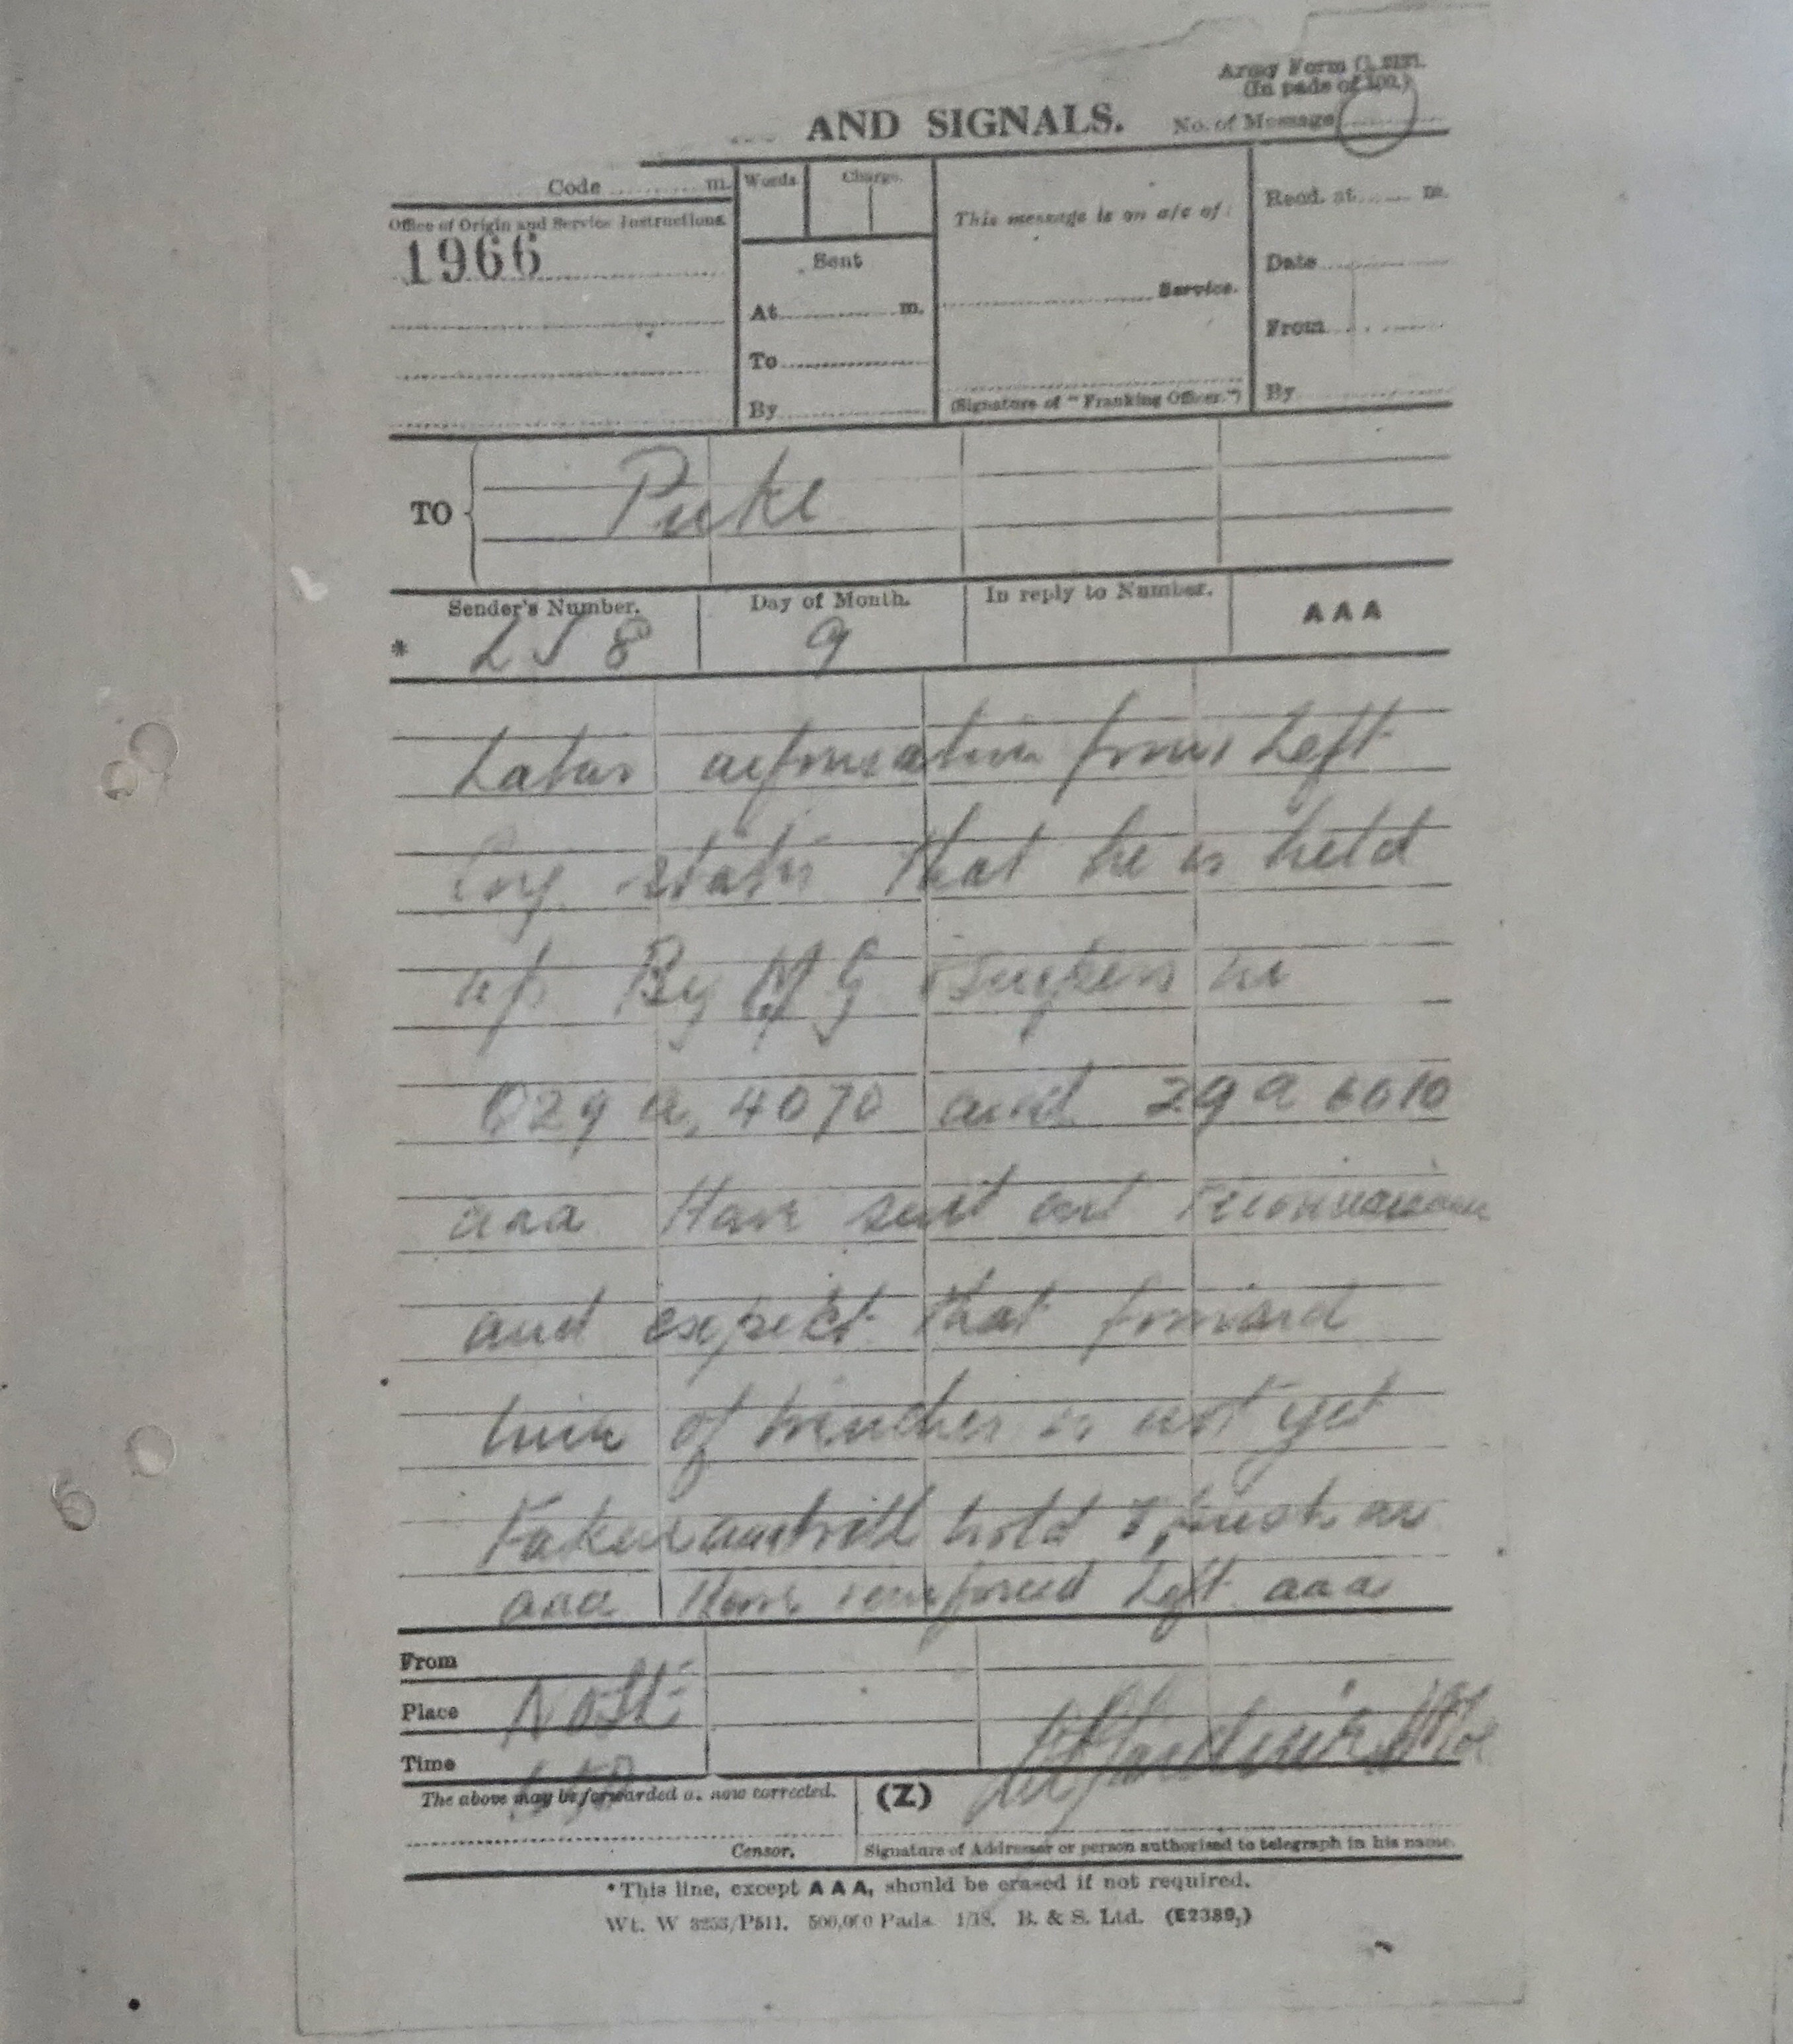 Army Form C. 2121.
(In pads of 100.)
AND SIGNALS.
No. of Message
Code m.
Words
Charge.
This message is on a/c of:
Recd. at m.
Office of Origin and Service Instructions.
1966
Sent
Date
At m.
Service.
From
To
By
(Signature of "Franking Officer.")
By
TO
Puke
Sender's Number.
Day of Month.
In reply to Number.
AAA
* LS 8
9
Later information from Left
Coy states that he is held
up By M G Snipers in
O29 a, 4070 and 29 a 6010
aaa Have sent out reconnaissance
and expect that forward
line of trenches is not yet
Taken and will hold & push on
aaa Have reinforced Left aaa
From
Place
Time
The above may be forwarded as now corrected.
(Z)
Censor.
Signature of Addressor or person authorised to telegraph in his name.
*This line, except AAA, should be erased if not required.
Wt. W 3253/P511. 500,000 Pads. 1/18. B. & S. Ltd. (E2389.)